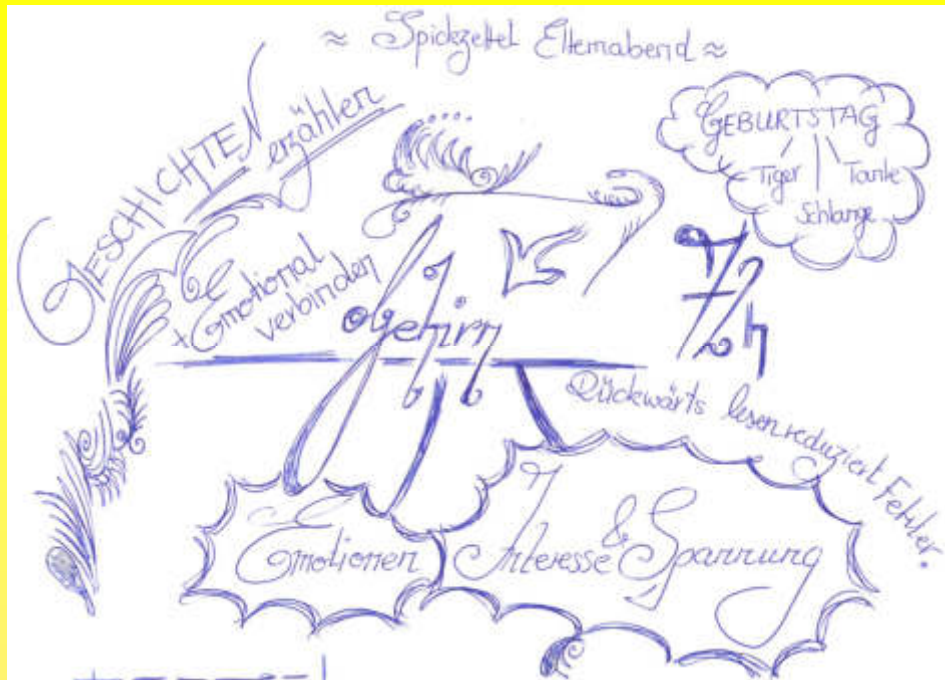 ≈ Spickzettel Elternabend ≈
GESCHICHTEN
erzählen
+ Emotional
verbinden
GEBURTSTAG
Tiger
Tante
Schlange
Gehirn
72h
Rückwärts lesen reduziert Fehler.
Emotionen
Interesse & Spannung